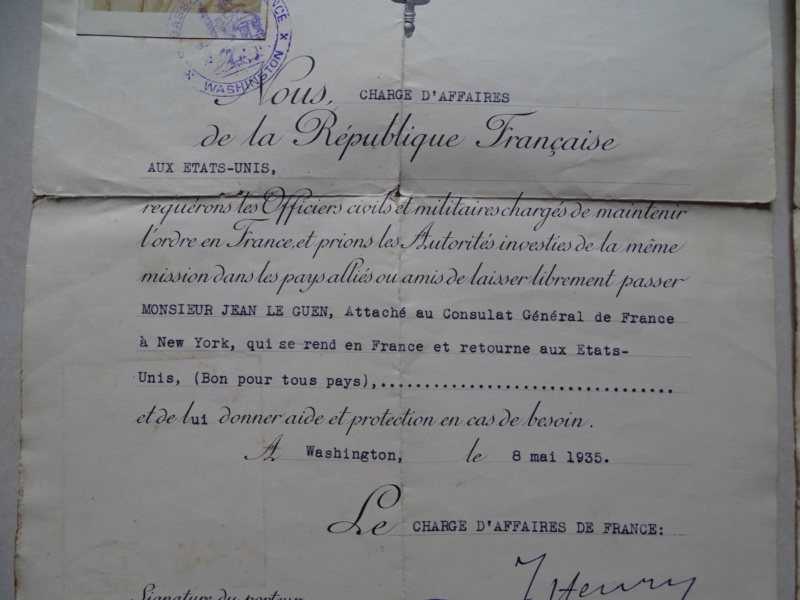 WASHINGTON
Nous, CHARGE D'AFFAIRES
de la République Française
AUX ETATS-UNIS,
requérons les Officiers civils et militaires chargés de maintenir
l'ordre en France, et prions les Autorités investies de la même
mission dans les pays alliés ou amis de laisser librement passer
MONSIEUR JEAN LE GUEN, Attaché au Consulat Général de France
à New York, qui se rend en France et retourne aux Etats-
Unis, (Bon pour tous pays),..................................
et de lui donner aide et protection en cas de besoin.
A Washington, le 8 mai 1935.
Le CHARGE D'AFFAIRES DE FRANCE:
Henry
Signature du porteur